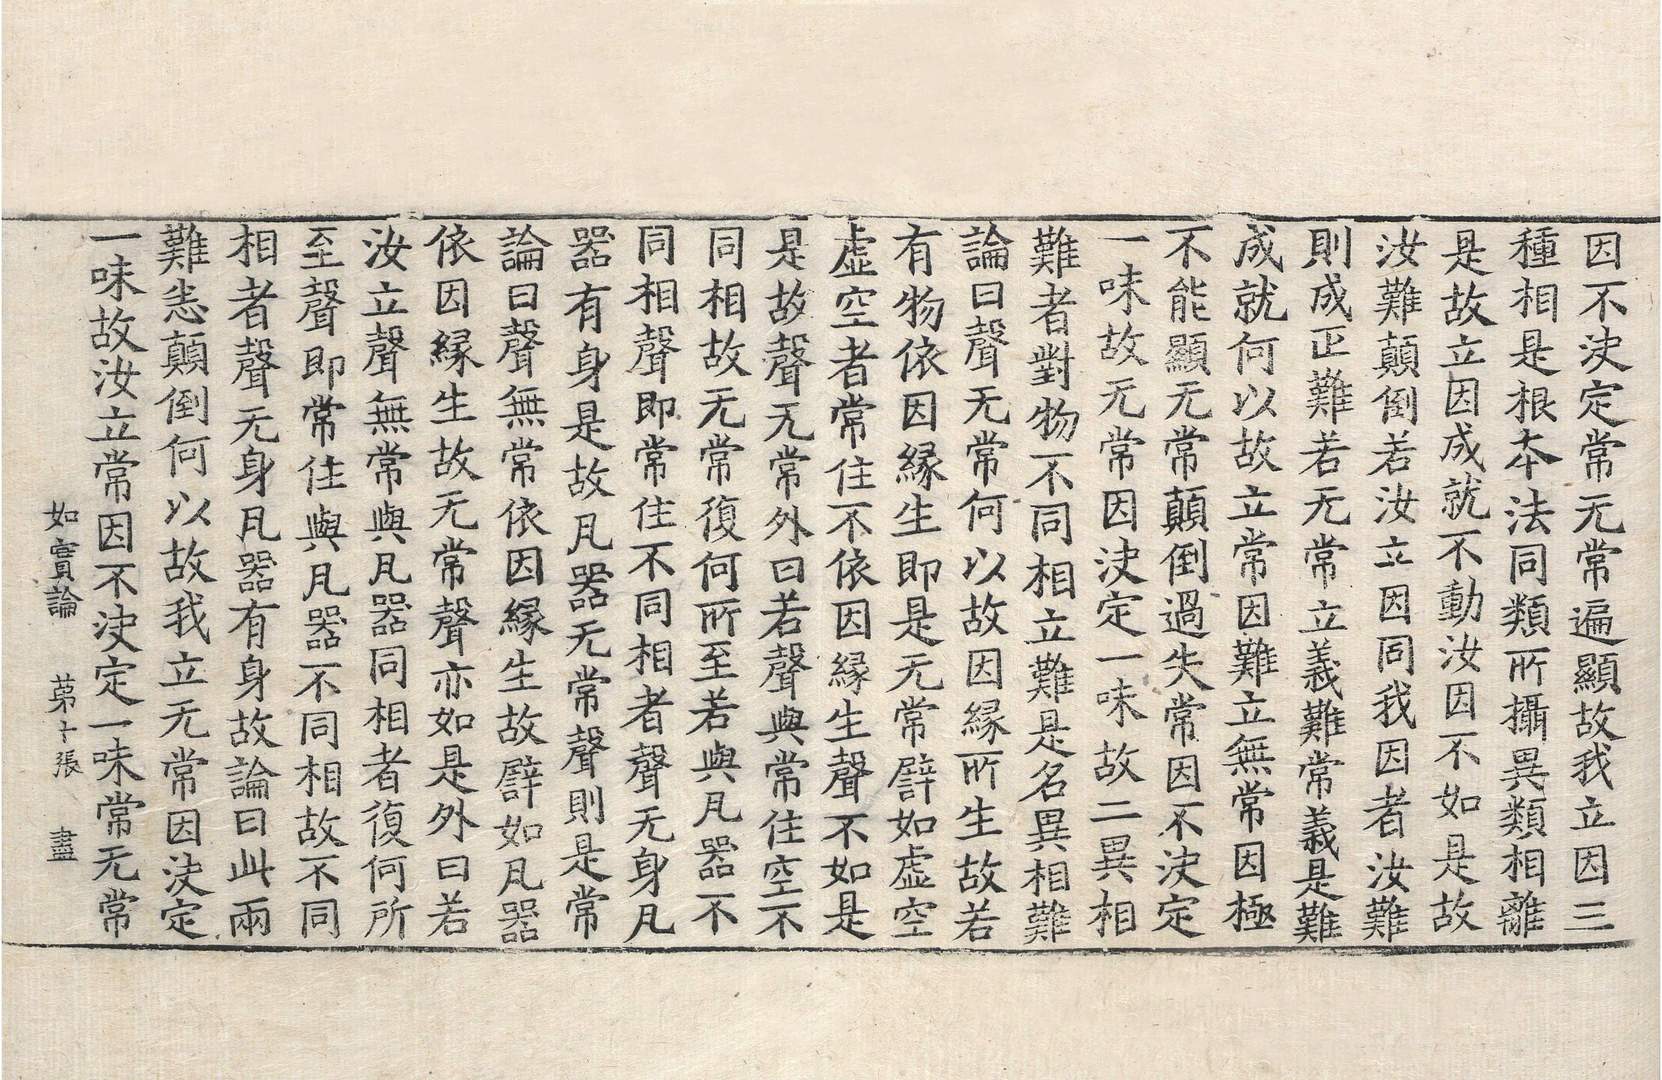 因不决定常无常遍顯故我立因三
種相是根本法同類所攝異類相離
是故立因成就不動汝因不如是故
汝難顛倒若汝立因同我因者汝難
則成正難若无常立義難常義是難
成就何以故立常因難立無常因極
不能顯无常顛倒過失常因不決定
一味故无常因決定一味故二異相
難者對物不同相立難是名異相難
論曰聲无常何以故因緣所生故若
有物依因緣生即是无常譬如虛空
虛空者常住不依因緣生聲不如是
是故聲无常外曰若聲與常住空不
同相故无常復何所至若與凡器不
同相聲即常住不同相者聲无身凡
器有身是故凡器无常聲則是常
論曰聲無常依因緣生故譬如凡器
依因緣生故无常聲亦如是外曰若
汝立聲無常與凡器同相者復何所
至聲即常住與凡器不同相故不同
相者聲无身凡器有身故論曰此兩
難悉顛倒何以故我立无常因決定
一味故汝立常因不決定一味常无常
如實論 苐十張 盡